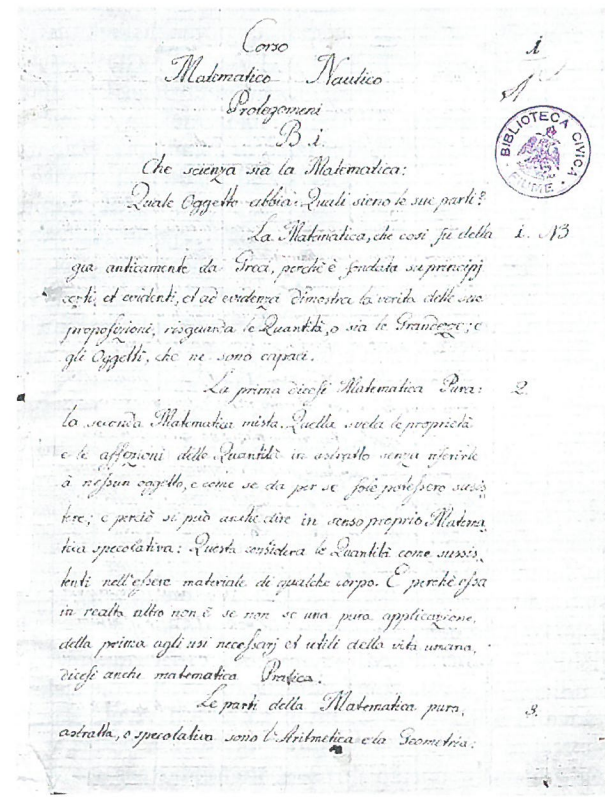 Corso
1
Matematico Nautico
Prolegomeni
BIBLIOTECA CIVICA
FIUME
Che scienza sia la Matematica:
Quale Oggetto abbia: Quali sieno le sue parti?
La Matematica, che così fù detta 1.
gia anticamente da Greci, perchè è fondata su principj
certi, et evidenti, et ad evidenza dimostra la verità delle sue
proposizioni, risguarda le Quantità, o sia le Grandezze; e
gli Oggetti, che ne sono capaci.
La prima dicesi Matematica Pura: 2.
la seconda Matematica mista. Quella svela le proprietà
e le affezioni delle Quantità in astratto senza riferirle
à nessun oggetto, e come se da per se sole potessero sussis,
tere; e perciò si può anche dire in senso proprio Matema,
tica specolativa: Questa considera le Quantità come sussis,
tenti nell'essere materiale di qualche corpo. E perchè essa
in realtà altro non è se non se una pura applicazione,
della prima agli usi necessarj et utili della vità umana,
dicesi anche matematica Pratica.
Le parti della Matematica pura, 3.
astratta, o specolativa sono l'Aritmetica e la Geometria: